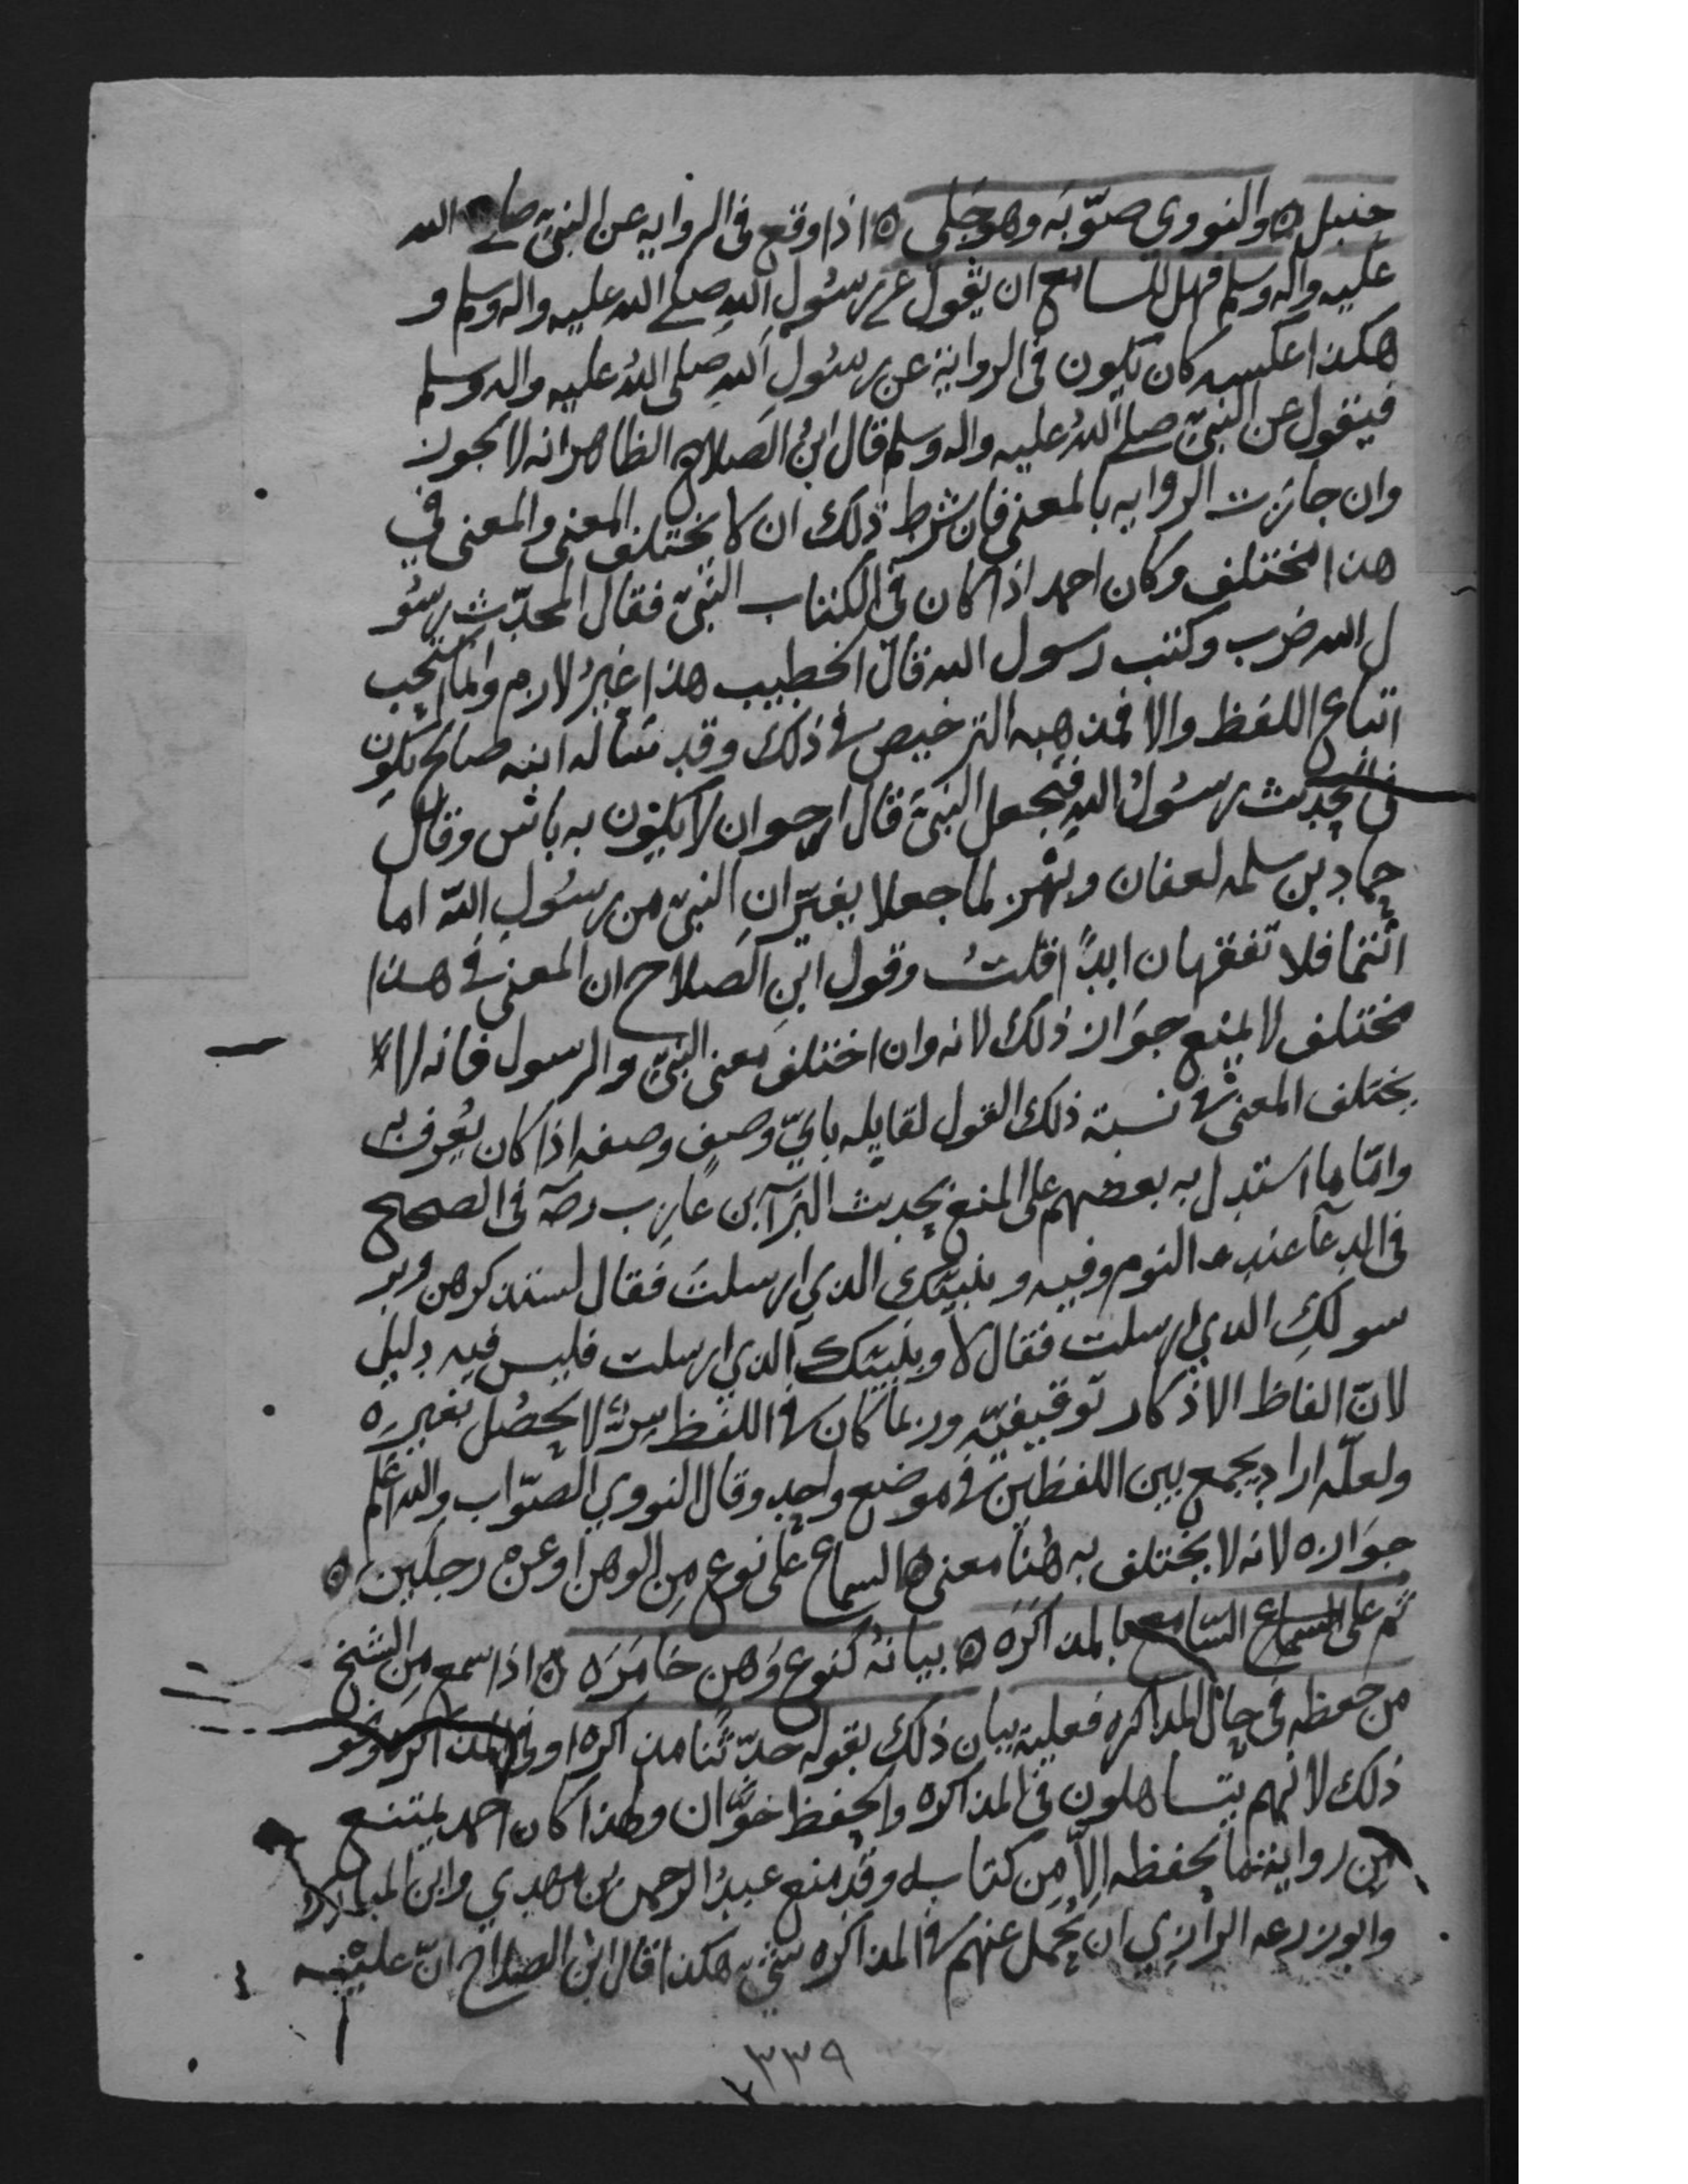 حنبل ه والنووي صوّبَه وهو جَلي ه اذا وقع في الروايه عن النبيّ صلى الله
عليه واله وسلم فهل للسامع ان يقول عن رسُولِ اللهِ صلى الله عليه واله وسلم و
هكذا عكسه كان يكون في الرواية عن رسُولِ اللهِ صلى اللهُ عليه واله وسلم
فيقول عن النبيّ صلى اللهُ عليه واله وسلم قال ابنُ الصلاح الظاهر انه لا يجوز
وان جازت الروايه بالمعنى فان شرط ذلك ان لا يختلف المعنى والمعنى في
هذا مختلف وكان احمد اذا كان في الكتاب النبيّ فقال المحدّث رسُو
ل الله ضرب وكتب رسول الله قال الخطيب هذا غيرُ لازم وانما استحب
اتباع اللفظ والا فمذهبه الترخيص في ذلك وقد سأله ابنه صالح يكون
في الحديث رسُولُ اللهِ فيجعل النبيّ قال ارجوان لا يكون به باس وقال
حماد بن سلمه لعفان وبهز لما جعلا يغيّرانِ النبيّ من رسُولِ اللهّ اما
انتما فلا تفقهان ابدًا قلتُ وقول ابنِ الصلاح ان المعنى في هذا
مختلف لا يمنع جوَاز ذلك لانه وان اختلف معنى النبيّ والرسول فانه لا
يختلف المعنى في نسبة ذلك القول لقايله بايّ وصفٍ وصفه اذا كان يُعرف به
وامّا ما استدل به بعضهم على المنع بحديث البَرآ بن عازب رضه في الصحيح
في الدعآ عند النوم وفيه ونبيّك الذي ارسلتَ فقال لستذكرهن وبر
سولكِ الذي ارسلت فقال لا ونبيّك الذي ارسلت فليس فيه دليل
لانّ الفاظ الاذكار توقيفيّه وربما كان في اللفظ سِرٌّ لا يحصُل بغيره
ولعلّه اراد يجمع بين اللفظين في موضع واحدٍ وقال النووي الصّواب والله اعلم
جوَازه لانه لا يختلف به هُنا معنى ه السماع على نوع مِن الوهن او عن رجلين ه
ثم على السّامع بالمذاكرَه ه بيانُه كنوع وَهن خامَرَه ه اذا سمع مِن الشيخ
من حفظه في حال المذاكره فعليه بيان ذلك بقوله حدّثنا مذاكره او في المذاكره ونحو
ذلك لانهم يتساهلون في المذاكره والحفظ خوّان ولهذا كان احمد يمتنع
مِن رواية ما يحفظه الّا مِن كتابه وقد منع عبدُ الرحمن بن مهدي وابن المبارك
وابو زرعه الرازي ان يُحمل عنهم في المذاكره شيءٍ هكذا قال ابن الصلاح انّ عليه
٣٣٩